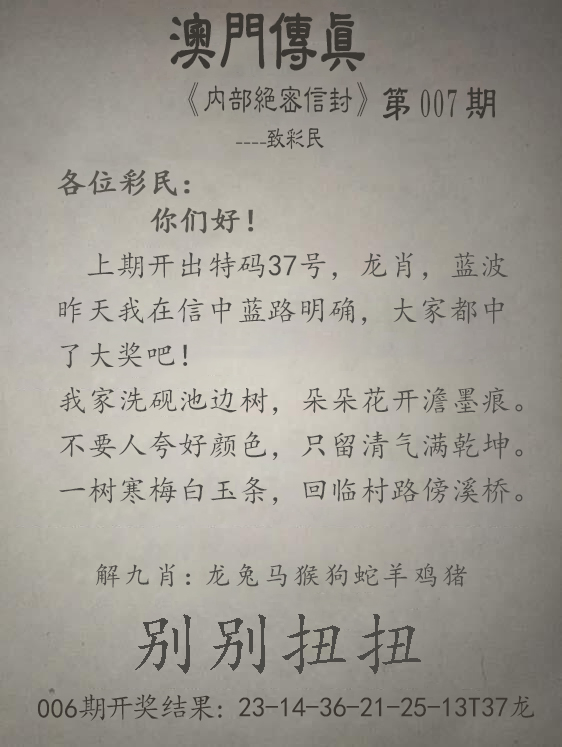 澳門傳眞
《内部絕密信封》第007期
----致彩民
各位彩民:
你们好!
上期开出特码37号，龙肖，蓝波
昨天我在信中蓝路明确，大家都中
了大奖吧!
我家洗砚池边树，朵朵花开澹墨痕。
不要人夸好颜色，只留清气满乾坤。
一树寒梅白玉条，回临村路傍溪桥。
解九肖：龙兔马猴狗蛇羊鸡猪
别别扭扭
006期开奖结果：23-14-36-21-25-13T37龙